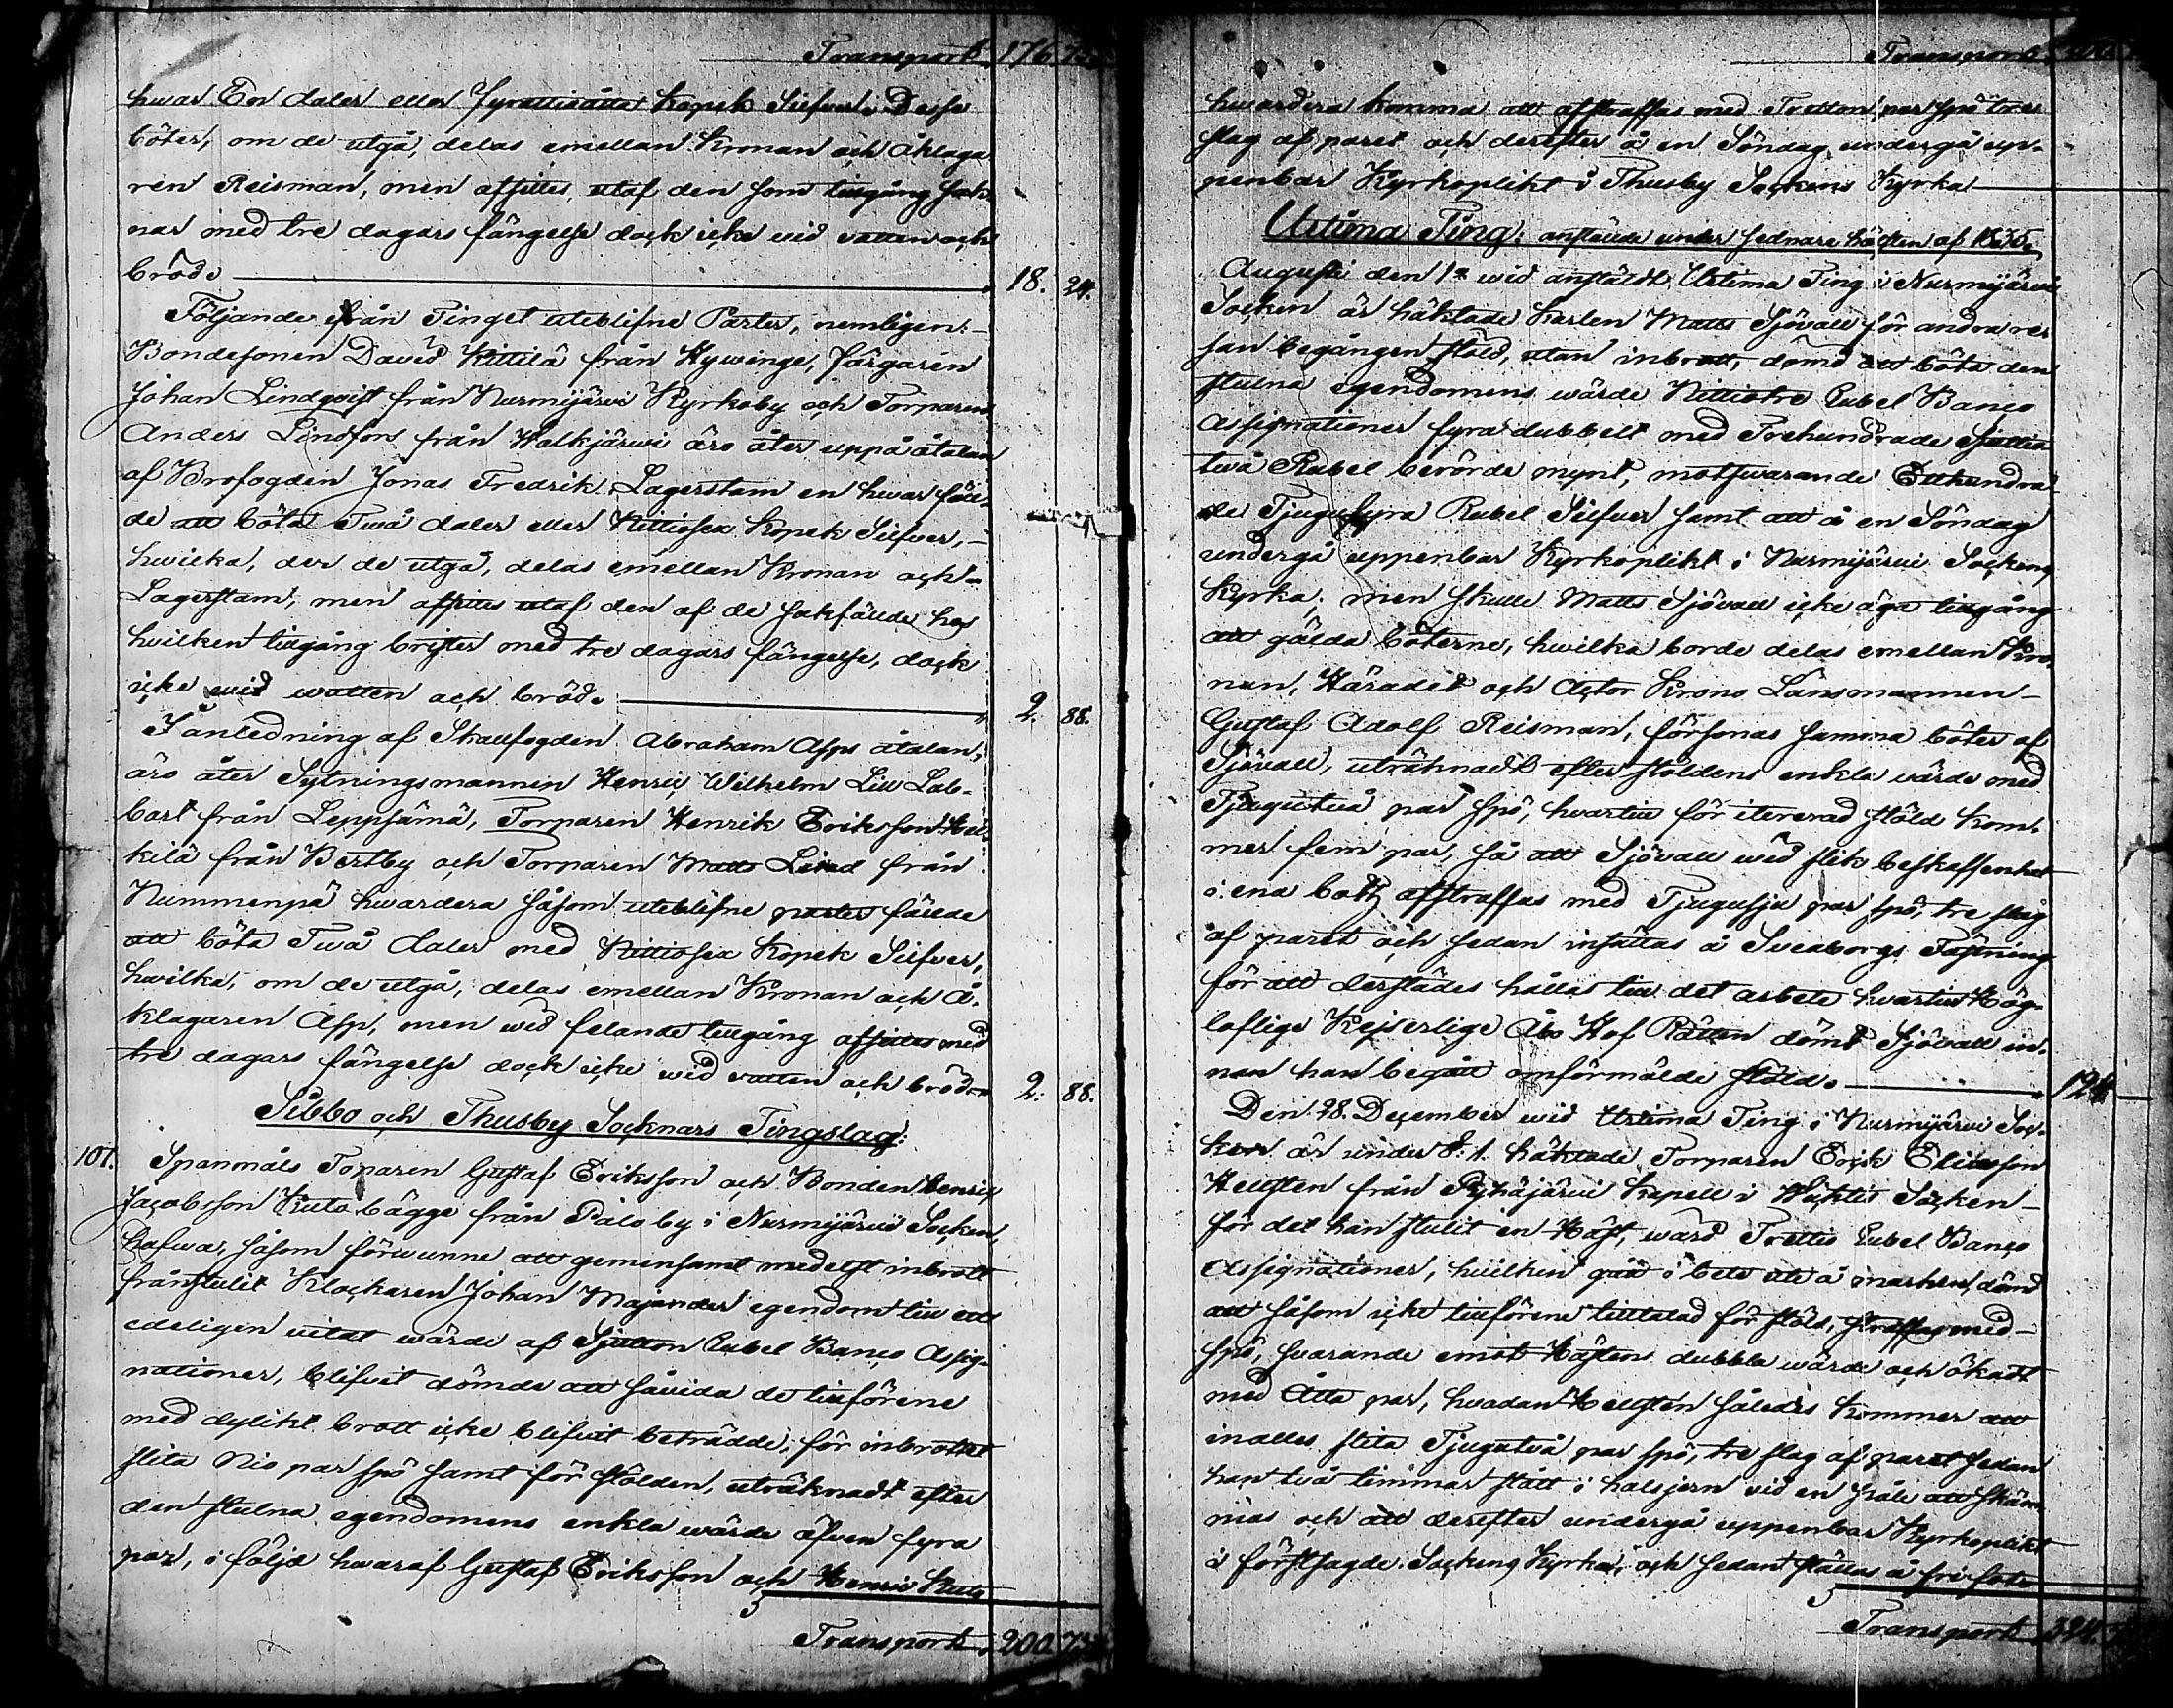 Transport 176. 73
hvar En daler eller Fyratioåtta kopek Silfver. Dessa
böter, om de utgå, delas emellan Kronan och åklaga-
ren Reisman, men afsittes utaf den som tillgång sak-
nar med tre dagars fängelse dock icke vid vatten och
bröd. 18. 24.
Följande från Tinget uteblifne Parter, nemligen:
Bondesonen David Kittilä från Hywinge, färgaren
Johan Lindqvist från Nurmijärvi Kyrkoby och Torparen
Anders Lindfors från Walkjärvi äro åter uppå åtalan
af Brofogden Jonas Fredrik Lagerstam en hvar fäll-
de att böta Två daler eller Nittiosex kopek Silfver,
hvilka, der de utgå, delas emellan Kronan och
Lagerstam, men afsittes utaf den af de sakfällde hos
hvilken tillgång brister med tre dagars fängelse, dock
icke wid watten och bröd. 2. 88.
I anledning af Skallfogden Abraham Asps åtalan,
äro åter Sytningsmannen Henric Wilhelm Lill Lab-
bart från Leppsämä, Torparen Henrik Eriksson Hei-
kilä från Bertby och Torparen Matts Lind från
Nummenpä hvardera såsom uteblifne parter fällde
att böta Två daler med Nittiosex kopek Silfver,
hvilka, om de utgå, delas emellan Kronan och Å-
klagaren Asp, men wid felande tillgång afsittes med
tre dagars fängelse dock icke wid vatten och bröd. 2. 88.
Sibbo och Thusby Socknars Tingslag:
107. Spanmåls Toparen Gustaf Eriksson och Bonden Henric
Jacobsson Kuto bägge från Palo by i Nurmijärvi Socken,
hafwa, såsom förwunne att gemensamt medelst inbrott
frånstulit Klockaren Johan Majander egendom till ett
edeligen vitat wärde af Sjutton Rubel Banco Assig-
nationer, blifvit dömde att såvida de tillförene
med dylikt brott icke blifvit beträdde, för inbrottet
slita Nio par spö samt för stölden, uträknadt efter
den stulna egendomens enkla wärde äfven fyra
par, i följd hvaraf Gustaf Eriksson och Henric Kuto
Transport 200. 73
Transport
hvardera komma att afstraffas med Tretton par spö tre
slag af paret och derefter å en Söndag undergå up-
penbar Kyrkoplikt i Thusby Sockens Kyrka
Urtima Ting: anstälde under sednare hälften af 1835.
Augusti den 12 wid anstäldt Urtima Ting i Nurmijärvi
Socken är häktade Karlen Matts Sjövall för andra re-
san begången stöld, utan inbrott, dömd att böta den
stulna egendomens wärde Nittiotre Rubel Banco
Assignationer fyradubbelt med Trehundrade Sjuttio
två Rubel berörde mynt, motsvarande Etthundra-
de Tjugufyra Rubel Silfver samt att å en Söndag
undergå uppenbar Kyrkoplikt i Nurmijärvi Sockens
Kyrka; men skulle Matts Sjövall icke äga tillgång
att gälda böterne, hvilka borde delas emellan Kro-
nan, Häradet och Actor Krono Länsmannen
Gustaf Adolf Reisman, försonas samma böter af
Sjövall, uträknadt efter stöldens enkla värde med
Tjugutvå par spö, hvartill för itererad stöld kom-
mer fem par, så att Sjövall wid slik beskaffenhet
i ena bott afstraffas med Tjugusju par spö, tre slag
af paret och sedan insättas å Sveaborgs Fästning
för att derstädes hållas till det arbete hvartill Hög-
loflige Kejserlige Åbo Hof Rätten dömt Sjövall in-
nan han begått omförmälde stöld. 124
Den 28. December wid Urtima Ting i Nurmijärvi Soc-
ken är under §: 1. häktade Torparen Erick Eliasson
Hellsten från Pyhäjärvi Kapell i Wichtis Socken
för det han stulit en Häst, ward Trettio Rubel Banco
Assignationer, hvilken gått i bete ute å marken, dömd
att såsom icke tillförene tilltalad för stöld, straffas med
spö, svarande emot Hästens dubbla wärde och ökadt
med Åtta par, hvadan Hellsten således kommer att
inalles slita Tjugutvå par spö, tre slag af paret sedan
han två timmar stått i halsjern vid en påle att skäm-
mas och att derefter undergå uppenbar Kyrkoplikt
i förstsagde Sockens Kyrka, och sedan ställas å fri fot.
Transport 324.